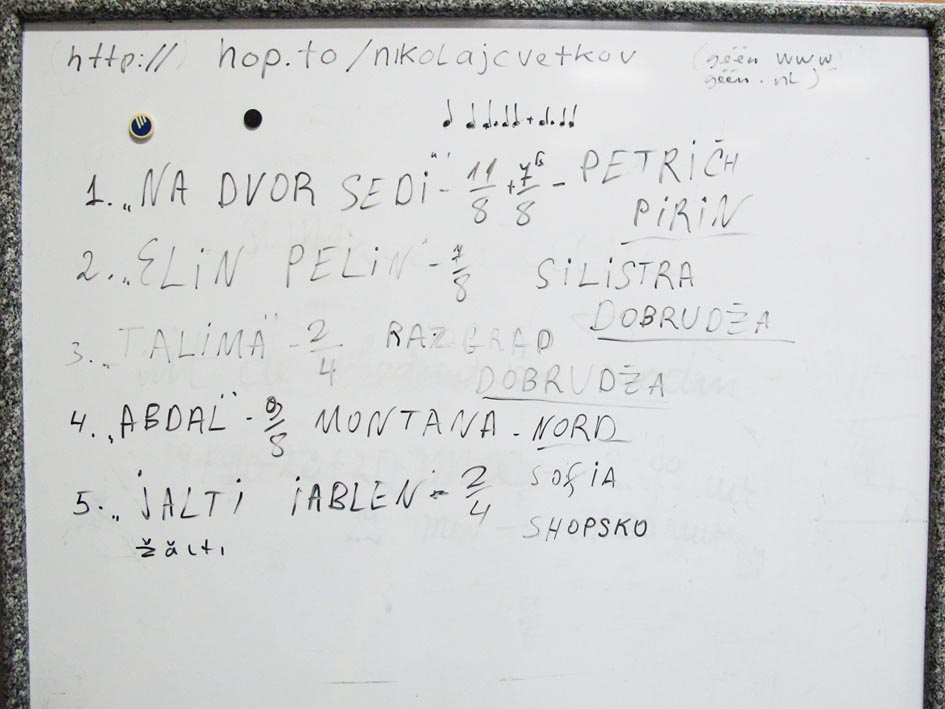 (http://) hop.to/nikolajcvetkov (géén www
géén .nl)
1. „NA DVOR SEDi" - 11/8 + 7/8 - PETRİČH
PiRiN
2. „ELiN PELiN" - 7/8 SiLiSTRA
DOBRUDŽA
3. „TALiMA" - 2/4 RAZGRAD
DOBRUDŽA
4. „ABDAL" - 9/8 MONTANA - NORD
5. „jALTi iABLEN - 2/4 SOfiA
žălti SHOPSKO